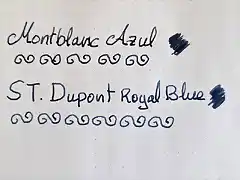 Montblanc Azul
ST. Dupont Royal Blue